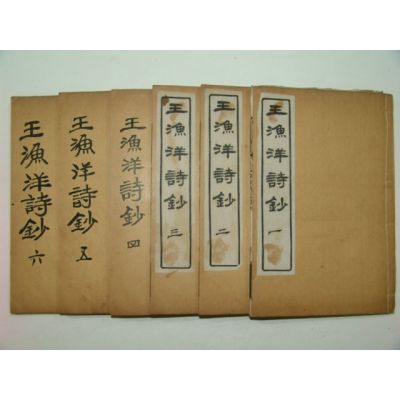 王漁洋詩鈔 一
王漁洋詩鈔 二
王漁洋詩鈔 三
王漁洋詩鈔 四
王漁洋詩鈔 五
王漁洋詩鈔 六